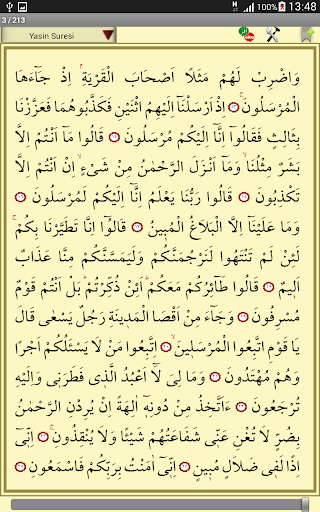 100% 13:48
3 / 213
Yasin Suresi
وَاضْرِبْ لَهُمْ مَثَلًا اَصْحَابَ الْقَرْيَةِ اِذْ جَآءَهَا
الْمُرْسَلُونَ اِذْ اَرْسَلْنَٓا اِلَيْهِمُ اثْنَيْنِ فَكَذَّبُوهُمَا فَعَزَّزْنَا
بِثَالِثٍ فَقَالُٓوا اِنَّٓا اِلَيْكُمْ مُرْسَلُونَ قَالُوا مَٓا اَنْتُمْ اِلَّا
بَشَرٌ مِثْلُنَاۙ وَمَٓا اَنْزَلَ الرَّحْمٰنُ مِنْ شَيْءٍۙ اِنْ اَنْتُمْ اِلَّا
تَكْذِبُونَ قَالُوا رَبُّنَا يَعْلَمُ اِنَّٓا اِلَيْكُمْ لَمُرْسَلُونَ
وَمَا عَلَيْنَٓا اِلَّا الْبَلَاغُ الْمُبٖينُ قَالُٓوا اِنَّا تَطَيَّرْنَا بِكُمْۚ
لَئِنْ لَمْ تَنْتَهُوا لَنَرْجُمَنَّكُمْ وَلَيَمَسَّنَّكُمْ مِنَّا عَذَابٌ
اَلٖيمٌ قَالُوا طَٓائِرُكُمْ مَعَكُمْۜ اَئِنْ ذُكِّرْتُمْۜ بَلْ اَنْتُمْ قَوْمٌ
مُسْرِفُونَ وَجَٓاءَ مِنْ اَقْصَا الْمَدٖينَةِ رَجُلٌ يَسْعٰى قَالَ
يَا قَوْمِ اتَّبِعُوا الْمُرْسَلٖينَۙ اِتَّبِعُوا مَنْ لَا يَسْـَٔلُكُمْ اَجْرًا
وَهُمْ مُهْتَدُونَ وَمَا لِيَ لَٓا اَعْبُدُ الَّذٖي فَطَرَنٖي وَاِلَيْهِ
تُرْجَعُونَ ءَاَتَّخِذُ مِنْ دُونِهٖٓ اٰلِهَةً اِنْ يُرِدْنِ الرَّحْمٰنُ
بِضُرٍّ لَا تُغْنِ عَنّٖي شَفَاعَتُهُمْ شَيْـًٔا وَلَا يُنْقِذُونِۚ اِنّٖٓي
اِذًا لَفٖي ضَلَالٍ مُبٖينٍ اِنّٖٓي اٰمَنْتُ بِرَبِّكُمْ فَاسْمَعُونِ